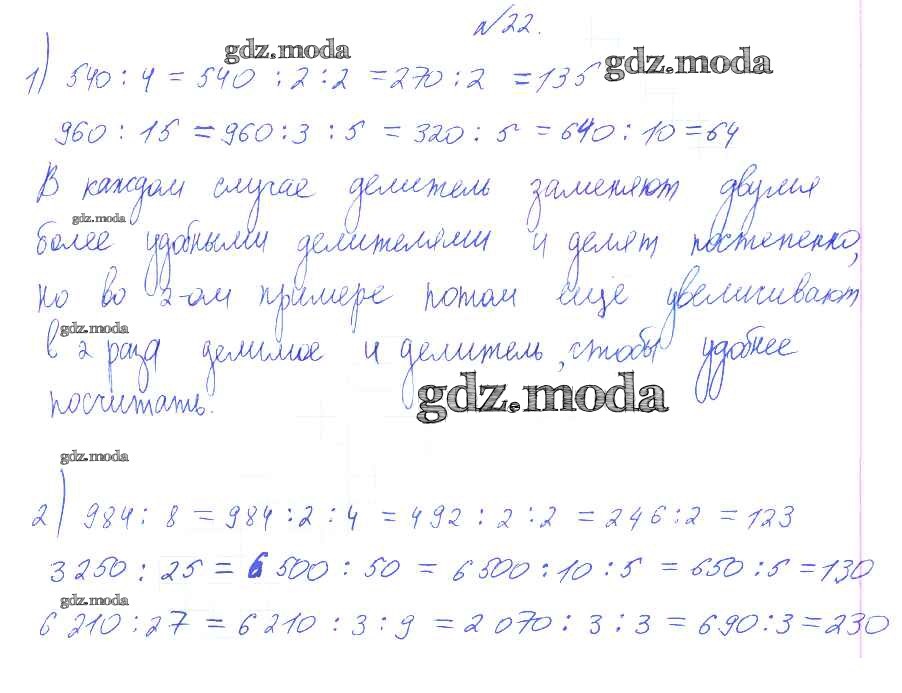 №22.
gdz.moda
gdz.moda
1) 540 : 4 = 540 : 2 : 2 = 270 : 2 = 135
960 : 15 = 960 : 3 : 5 = 320 : 5 = 640 : 10 = 64
В каждом случае делитель заменяют двумя
gdz.moda
более удобными делителями и делят постепенно,
но во 2-ом примере потом ещё увеличивают
gdz.moda
в 2 раза делимое и делитель, чтобы удобнее
посчитать.
gdz.moda
gdz.moda
2) 984 : 8 = 984 : 2 : 4 = 492 : 2 : 2 = 246 : 2 = 123
3 250 : 25 = 6 500 : 50 = 6 500 : 10 : 5 = 650 : 5 = 130
gdz.moda
6 210 : 27 = 6 210 : 3 : 9 = 2 070 : 3 : 3 = 690 : 3 = 230